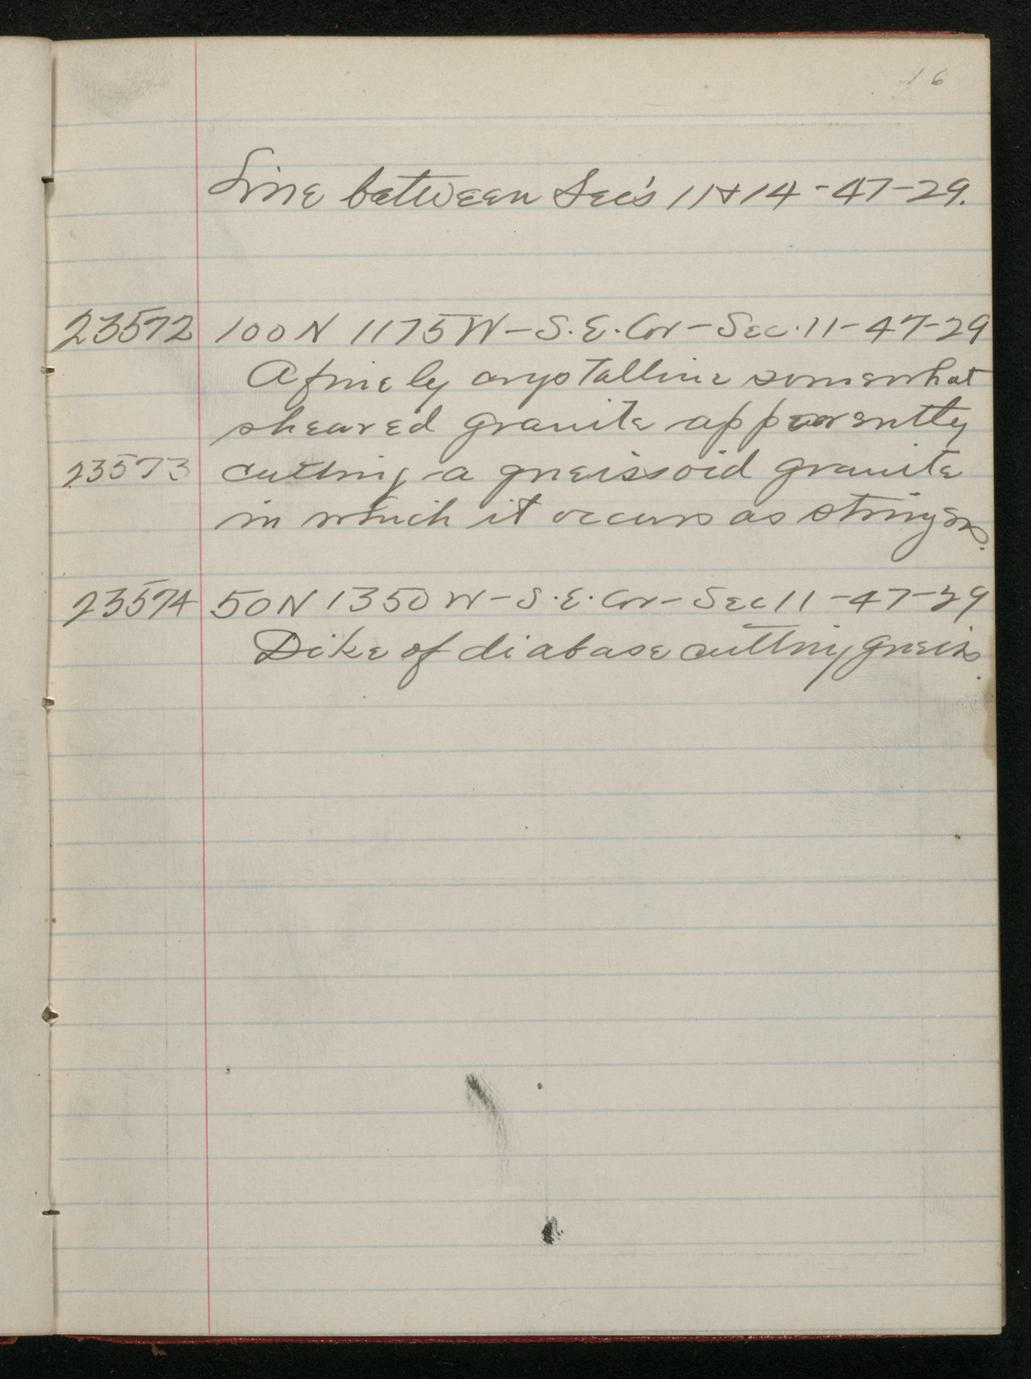 16
Line between Sec's 11 & 14 - 47-29.
23572 100 N 1175 W - S.E. Cor - Sec. 11 - 47-29
A finely crystalline somewhat
sheared granite apparently
23573 cutting a gneissoid granite
in which it occurs as stringers.
23574 50 N 1350 W - S.E. Cor - Sec 11 - 47-29
Dike of diabase cutting gneiss.